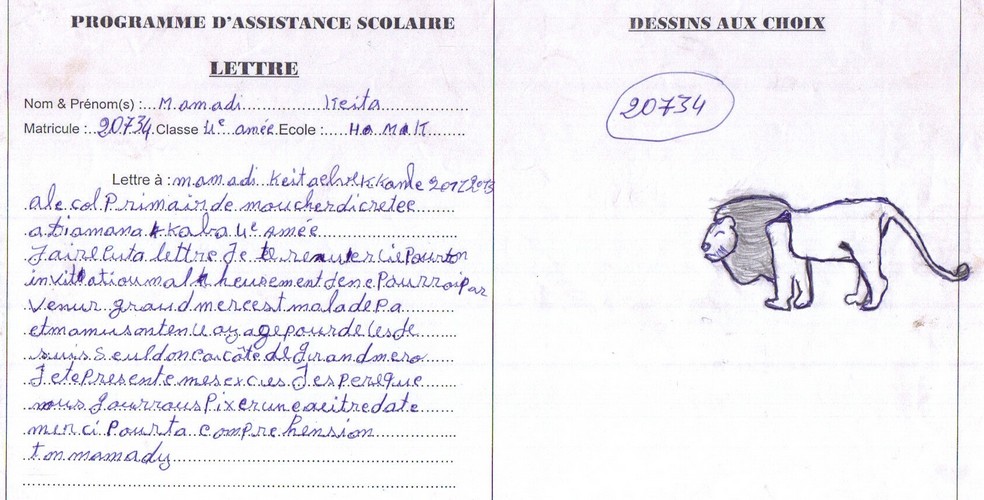 PROGRAMME D'ASSISTANCE SCOLAIRE
LETTRE
Nom & Prénom(s) :...Mamadi............Keita
Matricule :..20734.Classe 4e année.Ecole :....
Lettre à : mamadi Keita 2012 2013
ale col Primair de moucherdicretee
a tiamana kkaba 4e année
J'aire luta lettre Je te remercie Pour ton
invitation malheureusement Je ne Pourrois Pas
venir grand merc est malade Pa
et maman sont en voyage pour de les Je
suis seul donc a côte de grand mero
Je te Presente mes excies J'espere que
nous Pourrous Fixer une autre date
merci Pour ta comprehension
ton mamady
DESSINS AUX CHOIX
20734